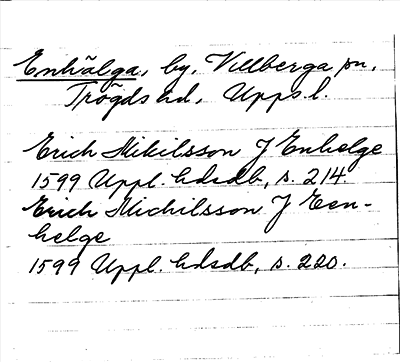 Enhälga, by, Villberga sn,
Trögds hd, Upps.l.
Erich Mikilsson J Enhelge
1599 Uppl. hdsdb, s. 214.
Erich Michilsson J Een-
helge
1599 Uppl. hdsdb, s. 220.